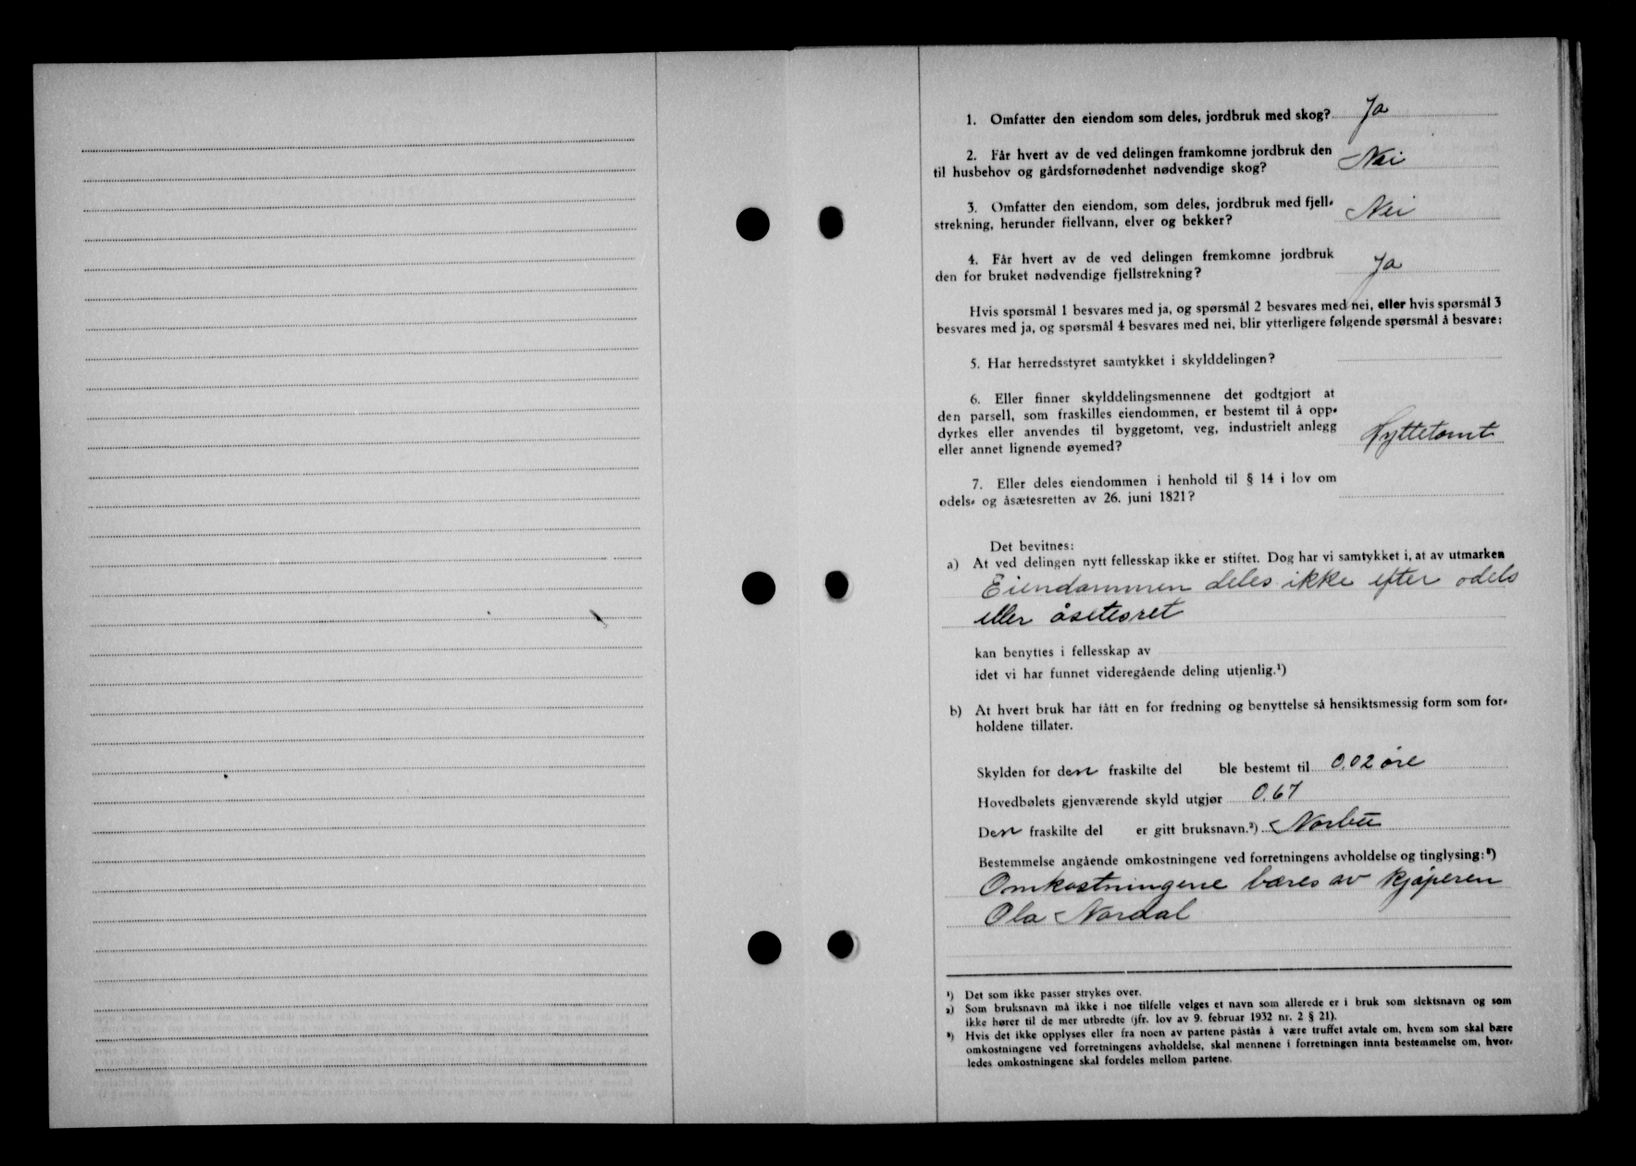 1. Omfatter den eiendom som deles, jordbruk med skog? Ja
2. Får hvert av de ved delingen framkomne jordbruk den
til husbehov og gårdsfornødenhet nødvendige skog? Nei
3. Omfatter den eiendom, som deles, jordbruk med fjell-
strekning, herunder fiellvann, elver og bekker? Nei
4. Får hvert av de ved delingen fremkomne jordbruk
den for bruket nødvendige fjellstrekning? Ja
Hvis spørsmål 1 besvares med ja, og spørsmål 2 besvares med nei, eller hvis spørsmål 3
besvares med ja, og spørsmål 4 besvares med nei, blir ytterligere følgende spørsmål å besvare:
5. Har herredsstyret samtykket i skylddelingen?
6. Eller finner skylddelingsmennene det godtgjort at
den parsell, som fraskilles eiendommen, er bestemt til å opp-
dyrkes eller anvendes til byggetomt, veg, industrielt anlegg
eller annet lignende øyemed? Hyttetomt
7. Eller deles eiendommen i henhold til § 14 i lov om
odels- og åsætesretten av 26. juni 1821?
Det bevitnes:
a) At ved delingen nytt fellesskap ikke er stiftet. Dog har vi samtykket i, at av utmarken
Eiendommen deles ikke efter odels
eller åsetesret
kan benyttes i fellesskap av
idet vi har funnet videregående deling utjenlig.¹)
b) At hvert bruk har fått en for fredning og benyttelse så hensiktsmessig form som for-
holdene tillater.
Skylden for den fraskilte del ble bestemt til 0,02 øre
Hovedbølets gjenværende skyld utgjør 0.67
Den fraskilte del er gitt bruksnavn.²) Norbu
Bestemmelse angående omkostningene ved forretningens avholdelse og tinglysing:³)
Omkostningene bæres av kjøperen
Ola Nordal
¹) Det som ikke passer strykes over.
²) Som bruksnavn må ikke i noe tilfelle velges et navn som allerede er i bruk som slektsnavn og som
ikke hører til de mer utbredte (jfr. lov av 9. februar 1932 nr. 2 § 21).
³) Hvis det ikke opplyses eller fra noen av partene påstås å være truffet avtale om, hvem som skal bære
omkostningene ved forretningens avholdelse, skal mennene i forretningen innta bestemmelse om, hvor-
ledes omkostningene skal fordeles mellom partene.